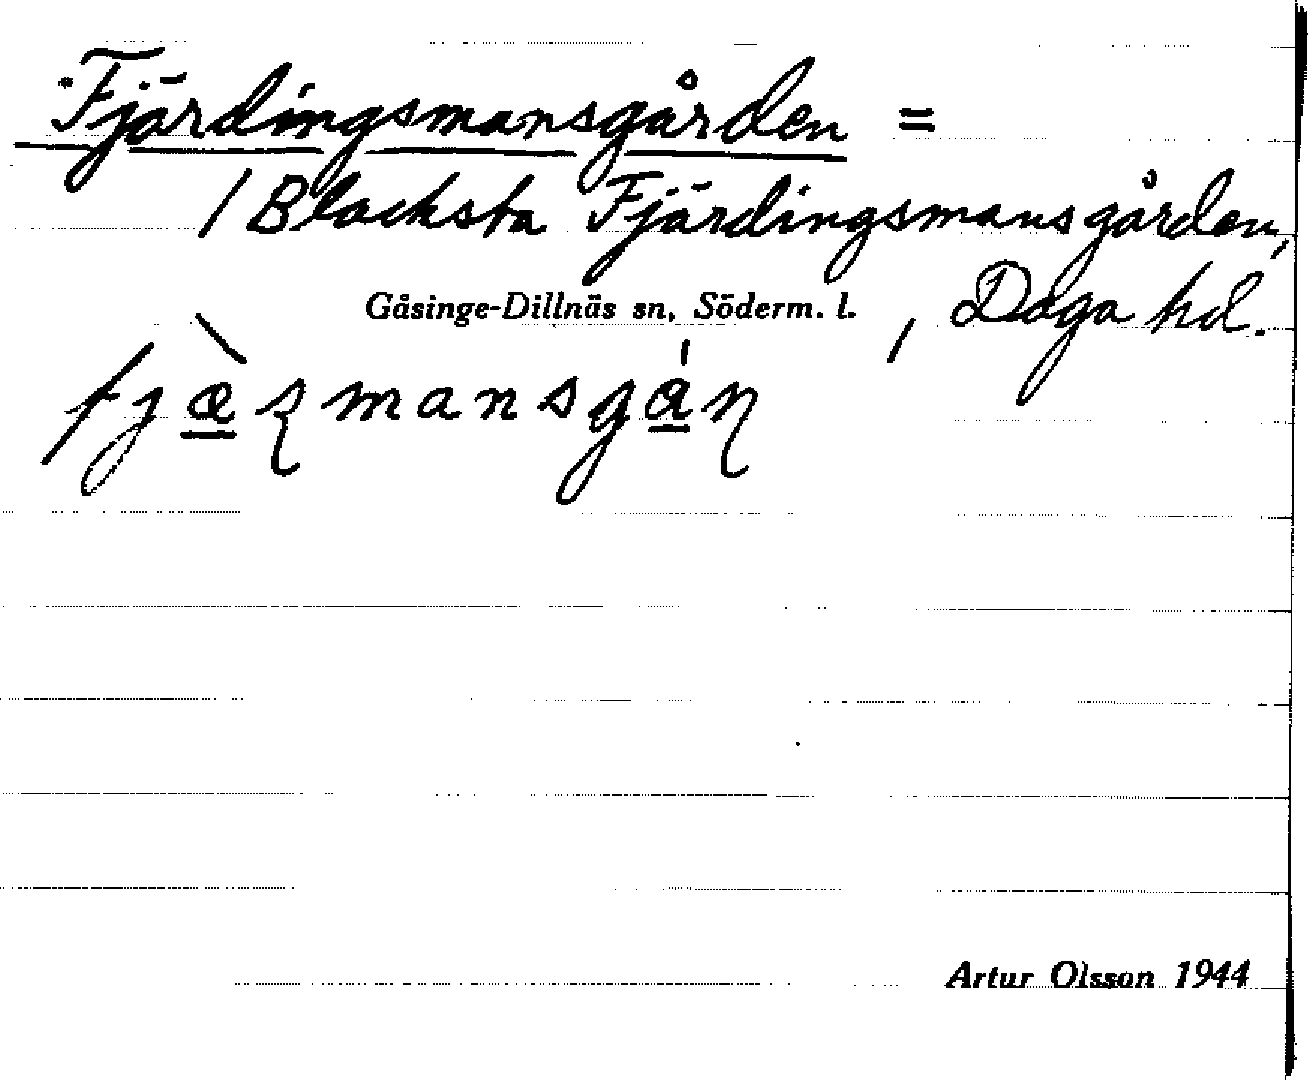 Fjärdingsmansgården =
/ Blacksta Fjärdingsmansgården,
Gåsinge-Dillnäs sn, Söderm. l., Daga hd.
Artur Olsson 1944